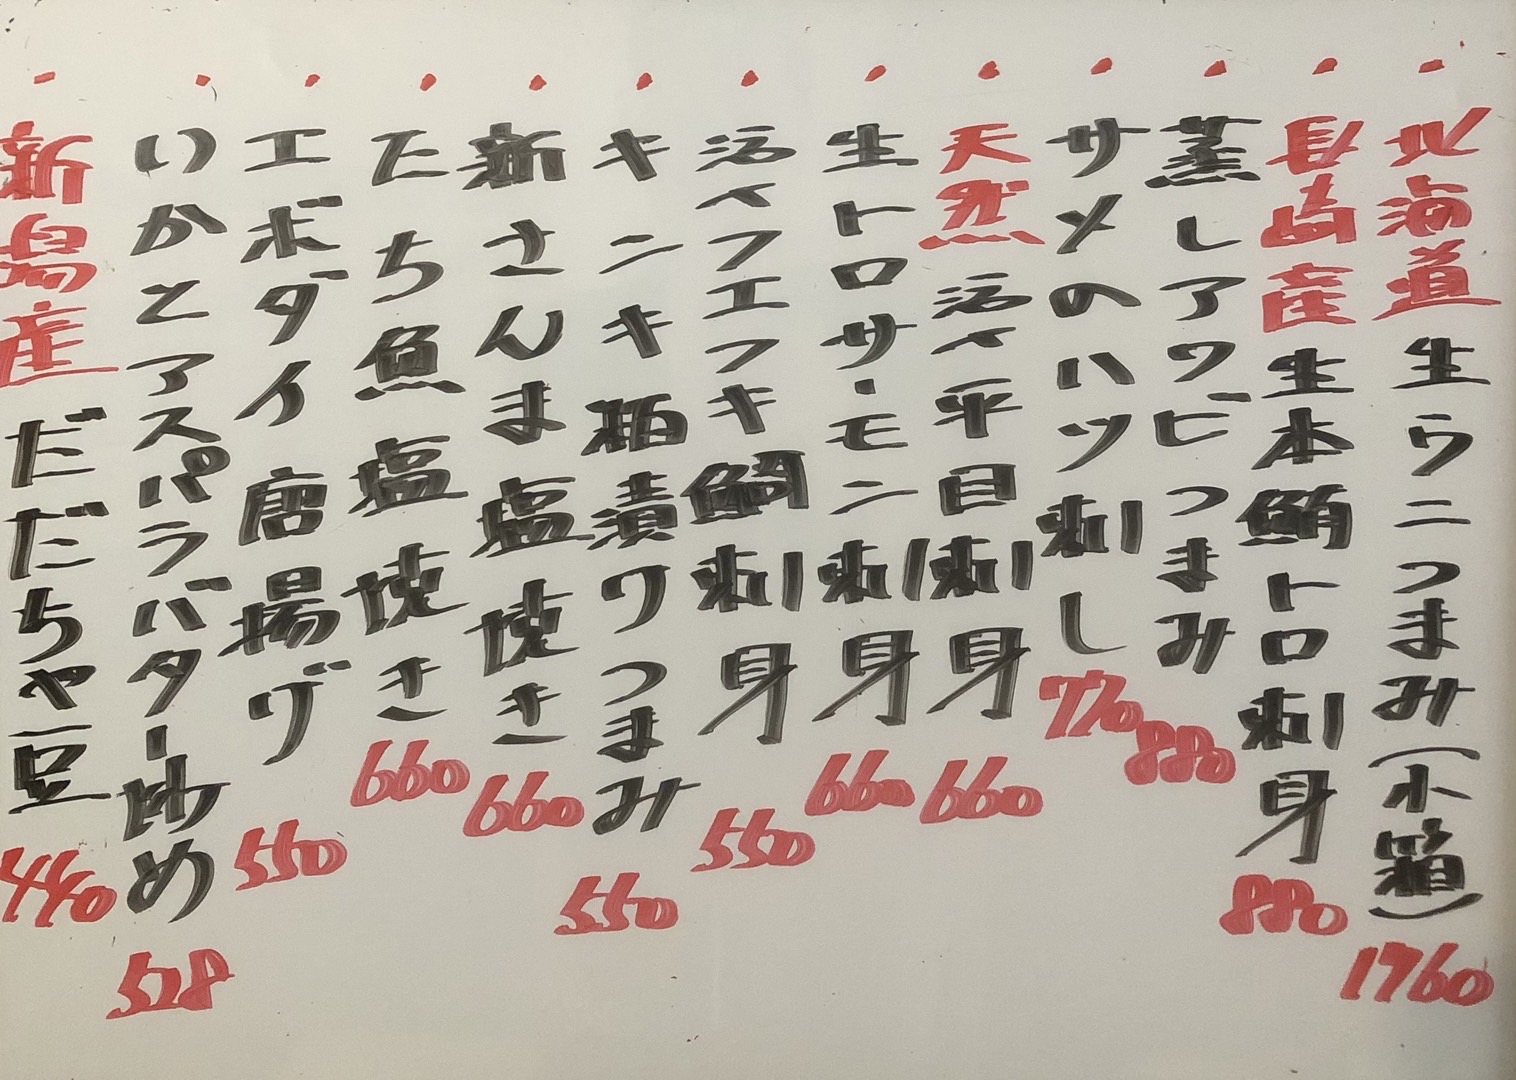 ・北海道生ウニつまみ(木箱)1760
・長崎産生本鮪トロ刺身880
・蒸しアワビつまみ880
・サメのハツ刺し770
・天然活〆平目刺身660
・生トロサーモン刺身660
・活〆フエフキ鯛刺身550
・キンキ粕漬ワつまみ550
・新さんま塩焼き660
・たち魚塩焼き660
・エボダイ唐揚げ550
・いかとアスパラバター炒め528
・新潟産だだちゃ豆440